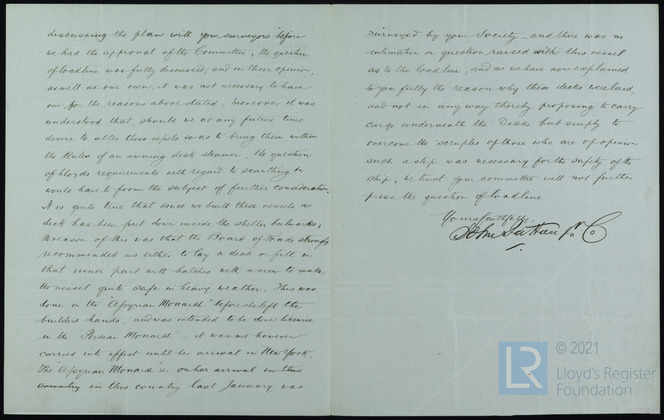 discussing the plan with your surveyors before
we had the approval of the Committee, the question
of loadline was fully discussed, and in their opinion,
as well as our own, it was not necessary to have
one, for the reasons above stated, moreover it was
understood that should we at any future time
desire to alter these vessels so as to bring them within
the Rules of an awning deck steamer, the question
of Lloyds requirements with regard to scantling &c
would have to form the subject of further consideration.
It is quite true that since we built these vessels a
deck has been put down inside the shelter bulwarks,
the reason of this was that the Board of Trade strongly
recommended us either to lay a deck or fill in
that inner part with hatches with a view to make
the vessel quite safe in heavy weather. This was
done in the "Assyrian Monarch" before she left the
builders hands, and was intended to be done likewise
in the "Persian Monarch" – it was not however
carried into effect until her arrival in New York.
The "Assyrian Monarch" is on her arrival in this
country in this country last January was
surveyed by your Society – and there was no
intimation or question raised with this vessel
as to the loadline, and as we have now explained
to you fully the reason why these decks were laid,
and not in any way thereby proposing to carry
cargo underneath the Decks but simply to
overcome the scruples of those who are of opinion
such a ship was necessary for the safety of the
ship, we trust your committee will not further
press the question of loadline
Yours faithfully
John & Co
© 2021
LR
Lloyd's Register
Foundation